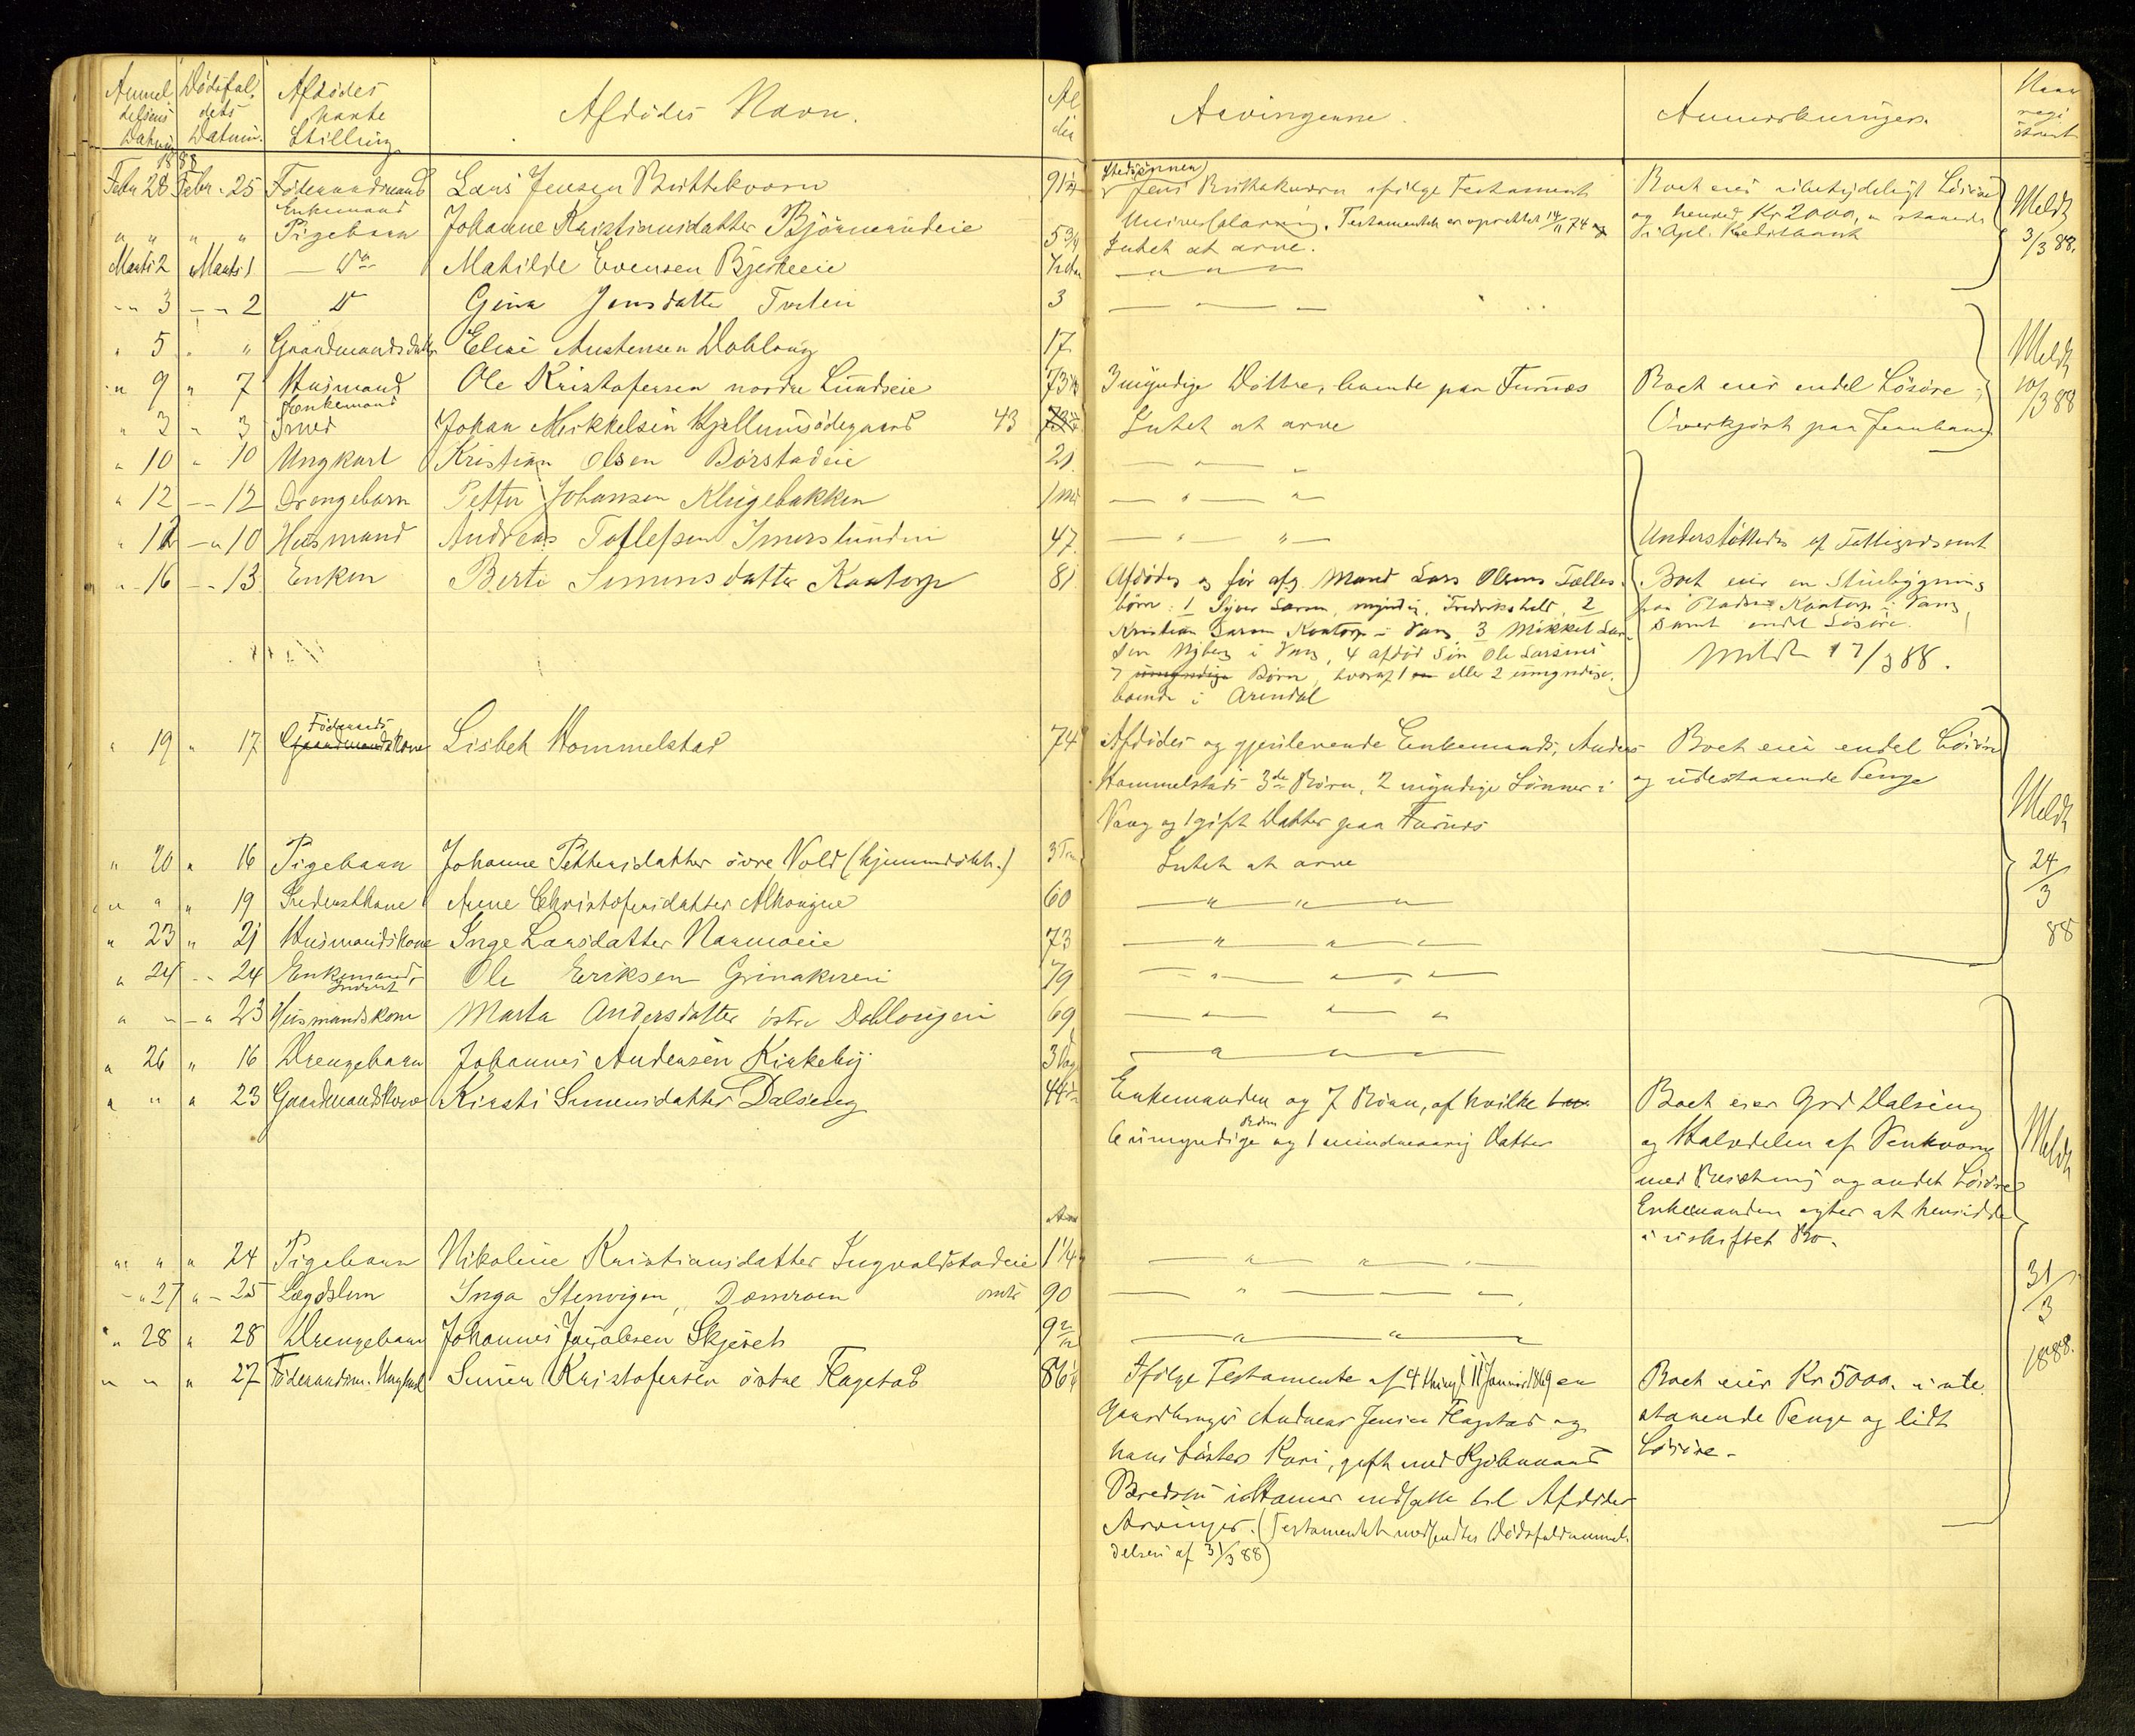 Anmel
delsens
Datum
Dødsfal.
dets
Datum.
Afdødes
havte
Stilling
Afdødes Navn.
Al
der
Arvingerne.
Anmerkninger.
Naar
regi
streret
1888
Febr 28 Febr. 25 Föderaadsmand Enkemand Lars Jensen
Stedsönnen
Jens ifölge Testament
Universalarving. Testamentet er oprettet 14/11 74
Boet eier ubetydeligt Lösöre
og henved Kr 2000, u staaende
i Opl. Kreditbank
Meldt
3/3 88.
" " " " Pigebarn Johanne Kristiansdatter 5 3/4 Intet at arve.
Marts 2 Marts 1 — Do Mathilde Evensen Bjerkeeie — " —
" 3 — " 2 Do Gina Jensdatter 3 — — —
" 5 " " Gaardmandsdatter Elise Austensen Dahlong 17
" 9 " 7 Husmand Enkemand Ole Kristofersen nordre Lundseie 73 3 myndige Döttre, boende paa Furnæs Boet eier endel Lösöre
Meldt
10/3 88
" 3 " 3 Smed Johan Mikkelsen Kjellumsödegaard 43 Intet at arve Overkjört paa Jernbanen
" 10 " 10 Ungkarl Kristian Olsen Börstadeie 21 — — "
" 12 — " 12 Drengebarn Petter Johansen Klugebakken 1 Md — " — "
" 12 — " 10 Husmand Andreas Toflefsen Imerslundeie 47 — " — " — Understöttedes af Fattigvæsenet
" 16 — " 13 Enken Berte Simensdatter Kaatorp 81
Afdödes og för afg. Mand Lars Olsens Fælles
börn: 1 Syver Larsen, myndig, Fredrikshald, 2
Kristian Larsen Kaatorp i Vang 3 Mikkel Lar
sen Nyberg i Vang, 4 afdöd Sön Ole Larsens
7 umyndige Börn, hvoraf 1 en eller 2 umyndige,
boende i Arendal
Boet eier en Stuebygning
paa Pladsen Kaatorp i Vang
samt endel Lösöre.
Meldt 17/3 88.
" 19 " 17 Föderaads Gaardmandskone Lisbet Hommelstad 74
Afdödes og gjenlevende Enkemands, Anders
Hommelstads 3de Börn, 2 myndige Sönner i
Vang og 1 gift Datter paa Furnæs
Boet eier endel Lösöre
og udestaaende Penge
Meldt
24
/
3
88
" 20 " 16 Pigebarn Johanne Pettersdatter övre Vold (hjemmedöbt.) 3 Intet at arve
" " " 19 Inderstkone Anne Christofersdatter 60 — " — " —
" 23 " 21 Husmandskone Inge Larsdatter 73 — " — " —
" 24 — " 24 Enkemand Inderst Ole Eriksen Grinakereie 79 — " — " —
" " — " 23 Husmandskone Marta Andersdatter östre Dahlongeie 69 — " — " — "
" 26 " 16 Drengebarn Johannes Andersen Kirkeby 3 Dag — " — " —
" " " 23 Gaardmandskone Kirsti Simensdatter Dalseng 44
Enkemanden og 7 Börn, af hvilke
6 umyndige og 1 mindreaarig Datter
Boet eier Grd Dalseng
og Halvdelen af
med Besætning og andet Lösöre
Enkemanden agter at hensidde
i uskiftet Bo.
Meldt
31
/
3
1888.
" " " 24 Pigebarn Nikoline Kristiansdatter Ingvaldstadeie 1 1/4 — " — " —
— " 27 " — 25 Lægdslem Inga Stenvigen, 90 — " — — —
" 28 " 28 Drengebarn Johannes Jacobsen Skjeset — " — " —
" " " 27 Föderaadsm. Ungkarl Simen Kristofersen östre Flagstad 86
Ifölge Testamente af 4 thingl 11 Januar 1869 er
Gaardbruger Andreas Jensen Flagstad og
hans Söster Kari, gift med Kjöbmand
Bredsen i Hamar indsatte til Afdödes
Arvinger. (Testamentet medsendtes Dödsfaldsanmel
delsen af 31/3 88)
Boet eier Kr 5000. i ude
staaende Penge og lidt
Lösöre.